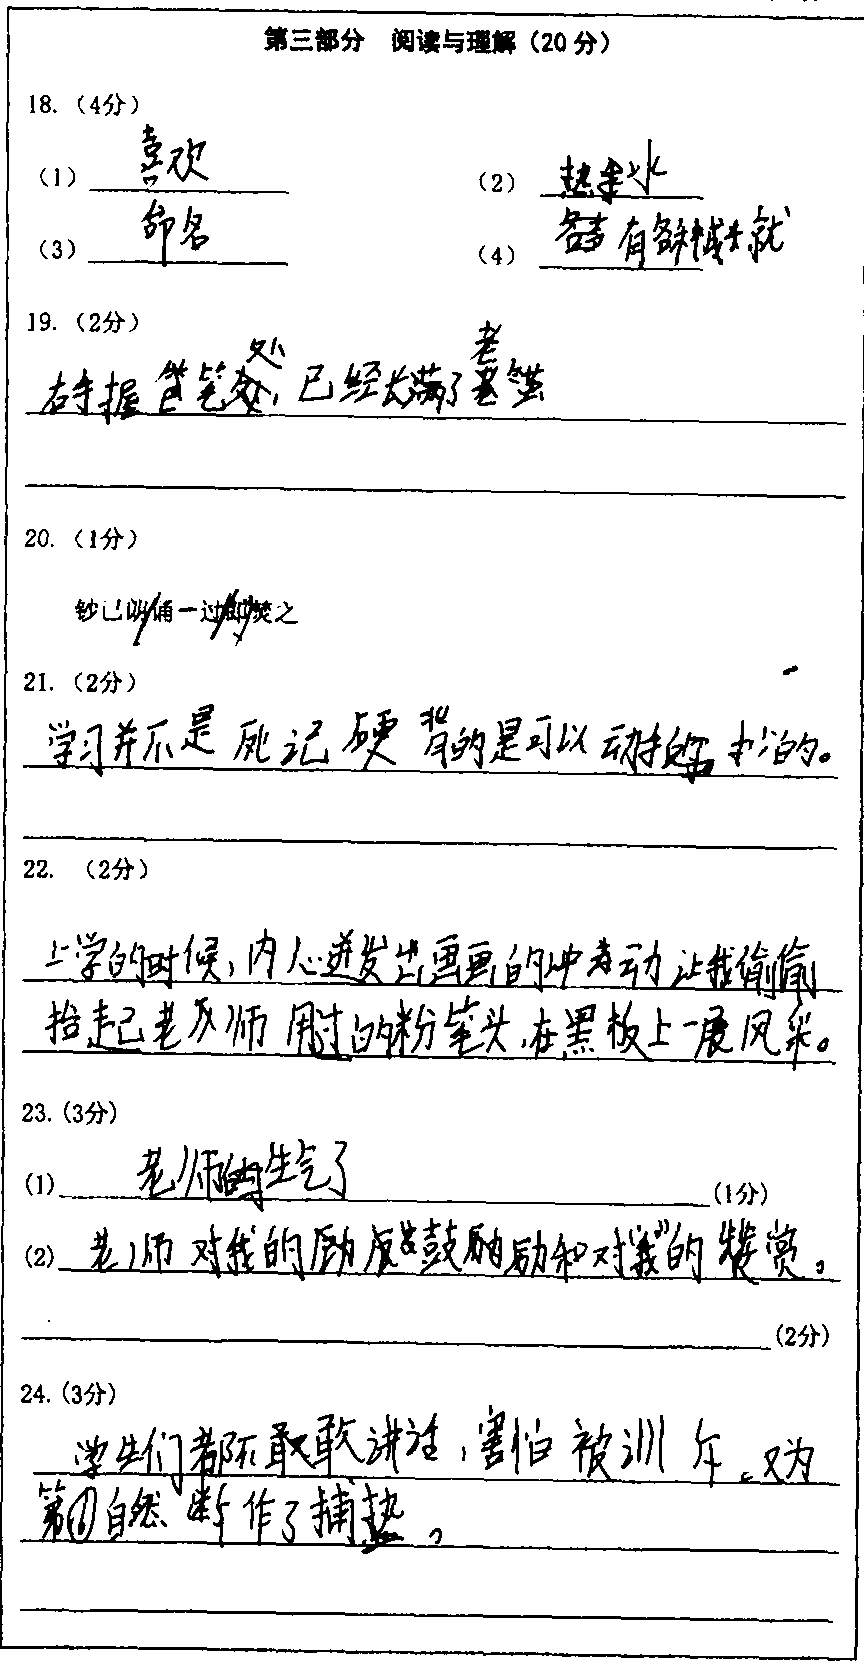 第三部分 阅读与理解（20分）
18.（4分）
（1） 喜欢 （2） 热水
（3） 命名 （4） 各有成就
19.（2分）
右手握笔处，已经长满了老茧
20.（1分）
钞已朗/诵一过/即/焚之
21.（2分）
学习并不是死记硬背的是可以动的。
22. （2分）
上学的时候，内心迸发出画画的冲动让我偷偷
抬起老师用过的粉笔头，在黑板上一展风采。
23.(3分)
(1) 老师生气了 (1分)
(2) 老师对我的鼓励和对"我"的赞赏。
(2分)
24.(3分)
学生们都不敢讲话，害怕被训斥。又为
第①自然断作了捕垫。